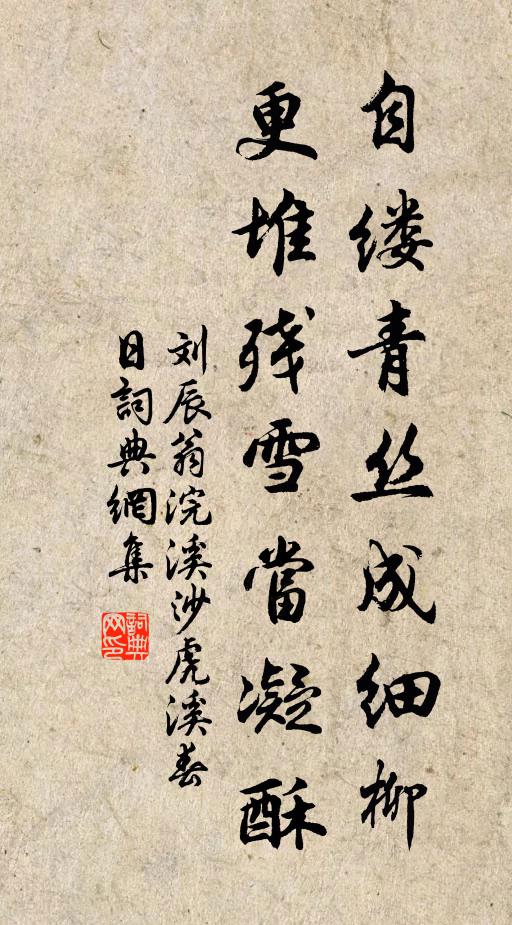 自缕青丝成细柳
更堆残雪當凝酥
刘辰翁浣溪沙虎溪春
日詞典網集
詞典
网印